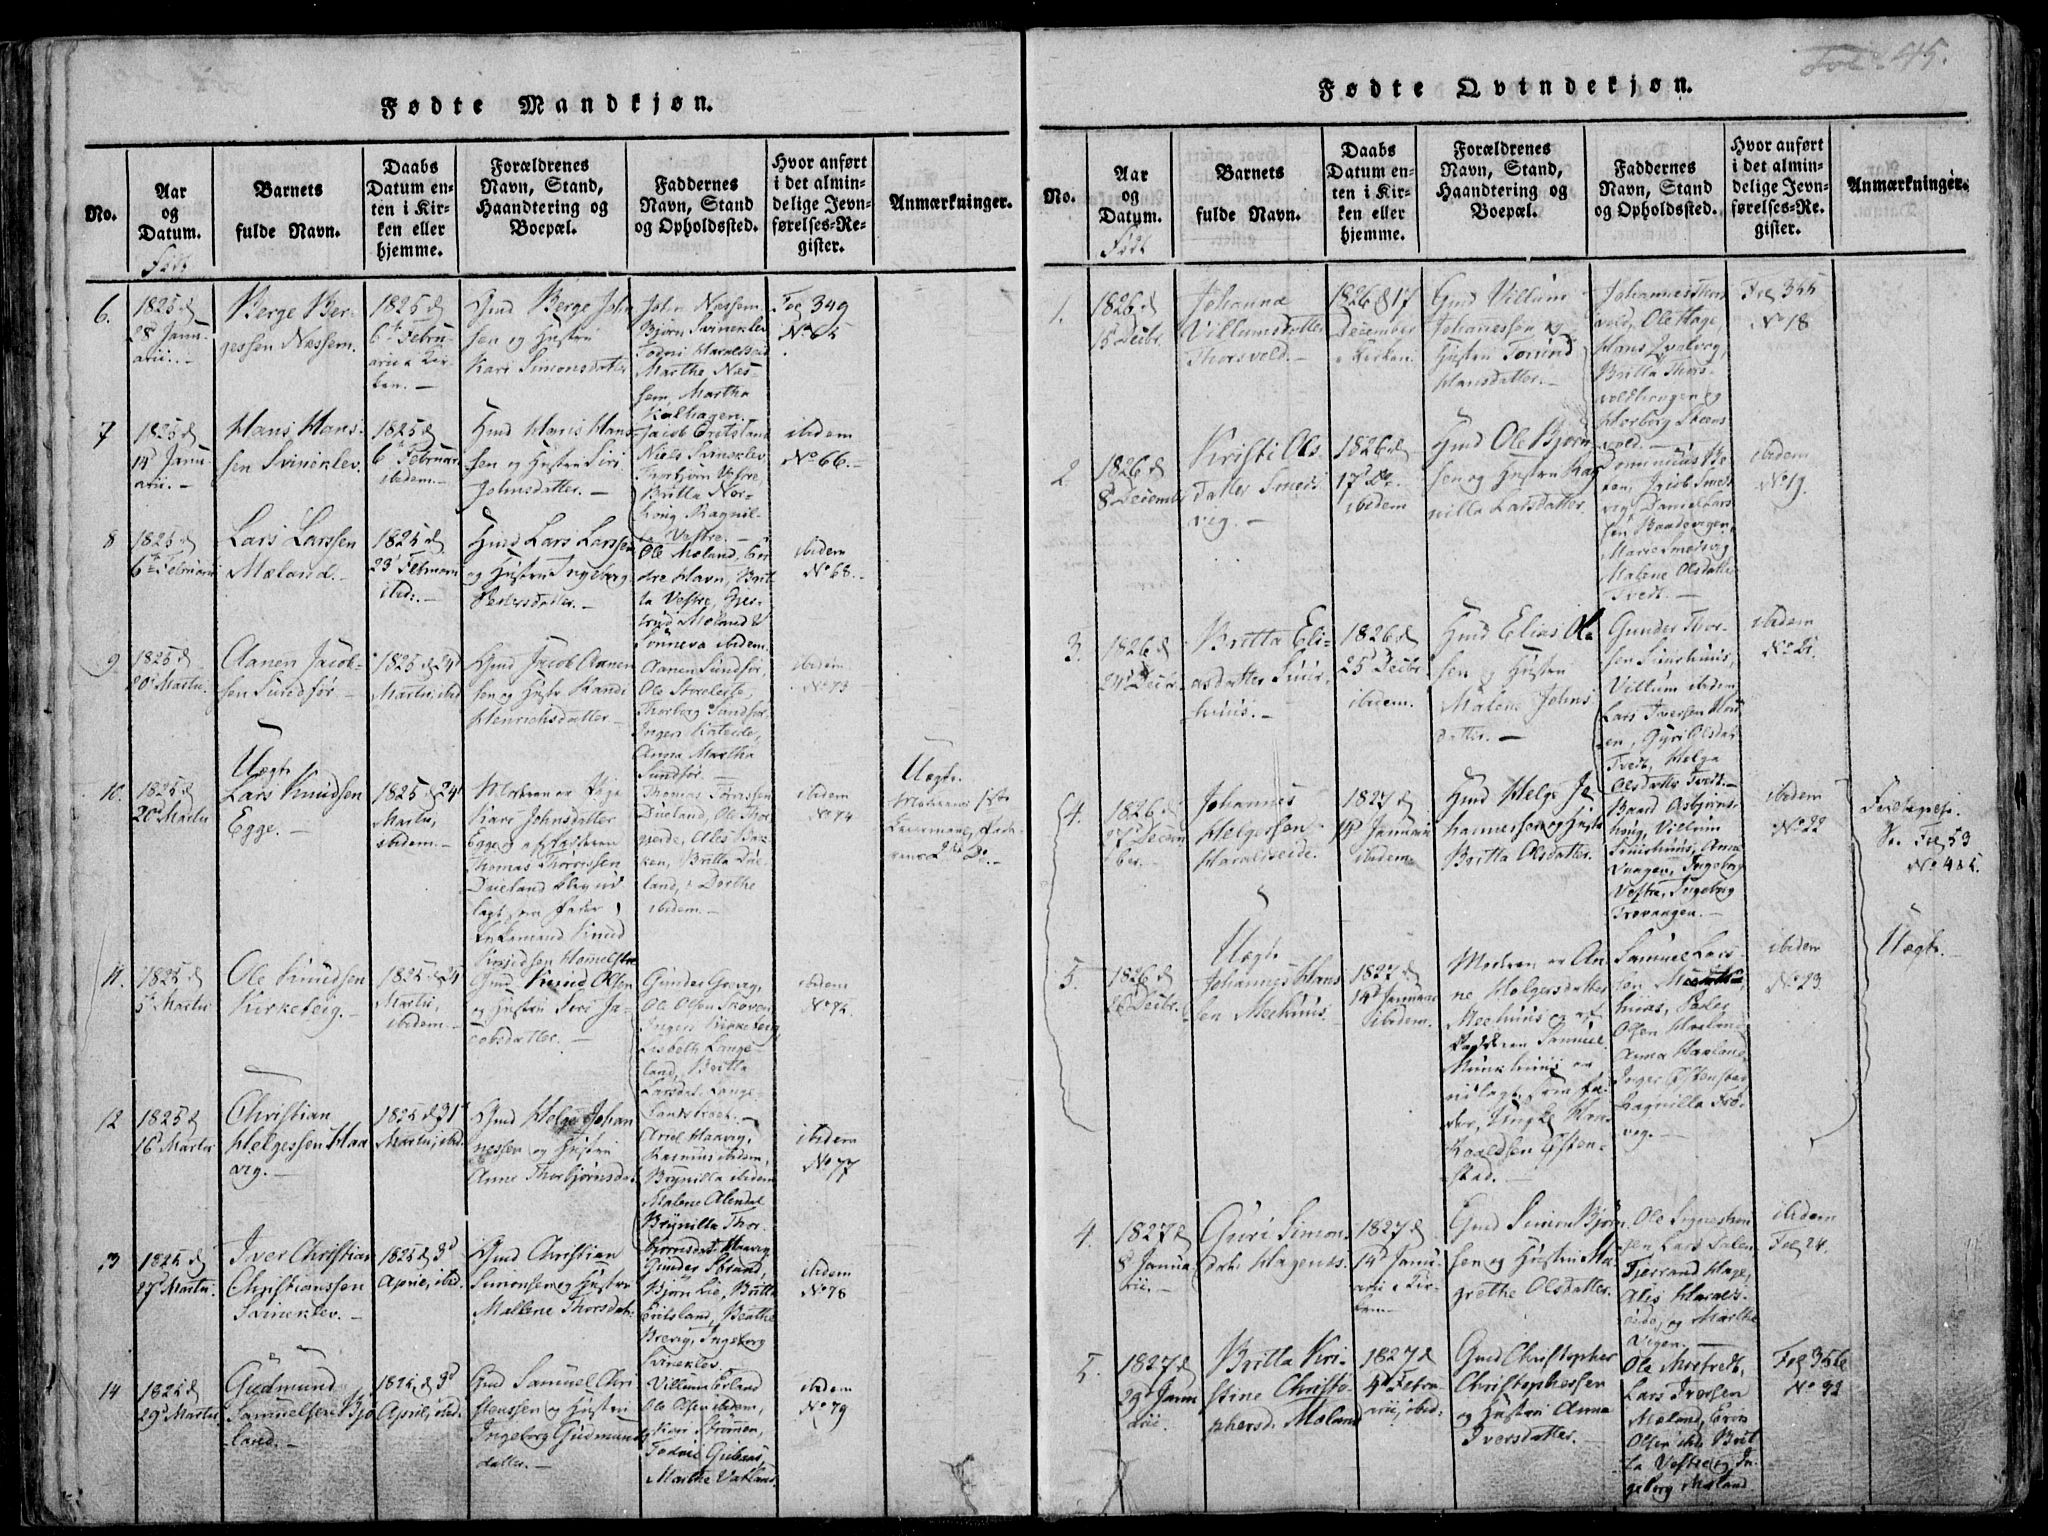 Fol. 45.
Fødte Mandkjøn.
No.
Aar og Datum.
Født
Barnets fulde Navn.
Daabs Datum enten i Kirken eller hjemme.
Forældrenes Navn, Stand, Haandtering og Boepæl.
Faddernes Navn, Stand og Opholdssted.
Hvor anført i det almindelige Jevnførelses-Register.
Anmærkninger.
6.
1825 d
28d Janu-
arii.
Berge Ber-
gessen Nessem.
1825 d
6t Febru-
arii i Kir-
ken.
Gmd Berge John
sen og Hustru
Kari Simonsdatter
John Nessem
Bjørn Svineklev
Marthe Nes-
sem, Martha
Kalhagen.
Fol 349
No 65
7
1825 d
14d Janu-
arii.
Hans Hans-
sen Svineklev.
1825 d
6t Februar
ibidem.
Gmd Hans Hans-
sen og Hustru Siri
Johnsdatter.
Jacob Eretsland
Niels Svineklev
Thorbjørn Vestre,
Britta Nor-
houg Ragnil-
la Vestre.
ibidem
No 66.
8
1825 d
6te Februarii
Lars Larssen
Mæland.
1825 d
23d Februarii
ibid:
Gmd Lars Larssen
og Hustru Ingeborg
Pedersdatter.
Ole Mæland, En-
dre Havn, Brit-
ta Vestre, Gjer-
trud Mæland &
Sønneva ibidem.
ibidem
No 68.
9
1825 d
20d Martii.
Aanen Jacob-
sen Sundfør.
1825 d 24d
Martii, ibid
Gmd Jacob Aanen
sen og Hustr Randi
Henrichsdatter
Aanen Sundfør,
Ole Storeleite,
Thorborg Sundfør
Ingeri
Anna Martha
Sundfør.
ibidem
No 73
10.
1825 d
20d Martii
Uægt.
Lars Knudsen
Egge.
1825 d 24d
Martii,
ibidem.
Moderen er Pige
Kari Johnsdatter
Egge, af Fadderen
Thomas Thorrissen
Dueland blev ud
lagt som Fader
Enkemand Knud
Knudsen
Thomas Torrissen
Dueland, Ole Thor-
Britta Due-
land, Dorthe
ibidem.
ibidem
No 74
Uægte.
Moderens 1ste
Leiermaal, Fade-
rens 2det Do.
11.
1825 d
5te Martii
Ole Knudsen
Kirketeig.
1825 d 24
Martii,
ibidem.
Gmd Knud Olsen
og Hustru Siri Ja-
cobsdatter.
Gunder
Ole Olsen Skoven
Ingeri Kirketeig
Lisbeth Lange-
land, Britta
Larsdat. Lange-
landstræet.
ibidem
No 72.
12
1825 d
16d Martii
Christian
Helgessen Haa
vig.
1825 d 31t
Martii, ibid.
Gmd Helge Johan
nessen og Hustru
Anne Thorbjørnsdat.
Ariel Haavig,
Rasmus ibidem,
Brynilla ibidem
Malene Alendal
Brynilla Thor-
bjørnsdat: Haavig
ibidem
No 77
13
1825 d
27d Martii.
Iver Christian
Christianssen
Svineklev.
1825 d 3d
April, ibid.
Gmd Christian
Simonsen og Hustru
Mallene Thorsdat.
Gunder Strand,
Bjørn Lie, Britte
Eritsland, Beathe
Brevig, Ingeborg
Svineklev.
ibidem
No 78
14
1825 d
29d Martii
Gudmund
Samuelsen Bjo
land.
1825, d 3d
April, ibid.
Gmd Samuel Chri
stenssen og Hustru
Ingeborg Gudmunds
datter.
Villum
Ole Olsen ibidem,
Kari Strømen,
Marthe Vatland.
ibidem
No 79
Fødte Qvindekjøn.
No.
Aar og Datum.
Født
Barnets fulde Navn.
Daabs Datum enten i Kirken eller hjemme.
Forældrenes Navn, Stand, Haandtering og Boepæl.
Faddernes Navn, Stand og Opholdssted.
Hvor anført i det almindelige Jevnførelses-Register.
Anmærkninger.
1.
1826 d
15 Decbr.
Johanna
Villumsdatter
Thorsvold.
1826 d 17
December
i Kirken.
Gmd Villum
Johannessen og
Hustru Torind
Hansdatter.
Johannes Thors
vold, Ole Hage,
Hans
Britta Thors-
voldhougen og
Herborg Steens-
vold.
Fol 355
No 18
2.
1826 d
8d Decemb
Kristi Ols
datter Smeds
vig.
1826 d
17d Do.
ibidem
Gmd Ole Bjørn
sen og Hustru Rag
nilla Larsdatter.
Jacob Smeds
vig, Daniel Lars
sen Baadsvigen,
Marie Smedsvig
Malene Olsdatter
Tvedt.
ibidem
No 19.
3.
1826 d
24d Decbr.
Britta Eli-
asdatter Suur-
huus.
1826 d
25d Decbr
ibidem.
Gmd Elias Ol
sen og Hustru
Malene Johns
datter.
Gunder Thor-
sen Suurhuus,
Villum ibidem
Lars Iversen
Guri Olsdat.
Tvedt, Helga
Olsdatter Tvedt.
ibidem
No 21.
4.
1826 d
27d Decem
ber.
Johannes
Helgessen
Haraldseide.
1827 d
14d Januarii
ibidem.
Gmd Helge Jo
hannessen og Hustru
Britta Olsdatter.
Baard Asbjørns-
houg, Villum
Suurhuus, Anna
Vaagen, Ingeborg
Vestre, Ingeborg
Trovaagen.
ibidem
No 22
Fol 53
No 415.
5.
1826 d
26 Decbr.
Uægt
Johannes Hans
sen Meehuus.
1827 d
14d Januarii
ibidem.
Moderen er An
ne Holgersdatter
Meehuus og af
Fadderen Samuel
Munkhuus er
udlagt som Fa-
der, Ungke Hans
Østen-
stad.
Samuel Lars
sen
huus, Peder
Olsen Haaland
Anna Haaland,
Inger Østensta,
Ragnilla Frø-
vig.
ibidem
No 23.
Uægte.
4.
1827 d
8d Janua
rii.
Guri Simons
dat: Hagenes.
1827 d
14d Janu-
arii i Kir-
ken
Gmd Simon Bjørn
sen og Hustru Ma
grethe Olsdatter.
Ole
sen Lars
Tjerrand Hage,
Alis Haralds-
eide, og Marthe
Vigen.
ibidem
Fol 24.
5.
1827 d
29d Janu
arii
Britta Kri-
stine Christo-
phersd. Mæland
1827 d
4d Febru
arii, ibid.
Gmd Christopher
Christophessen
og Hustru Anna
Iversdatter.
Ole Mortvedt,
Lars Iversen
Mæland,
Olsen ibid, Brit
ta Vestre og In-
geborg Mæland
Fol 356
No 32